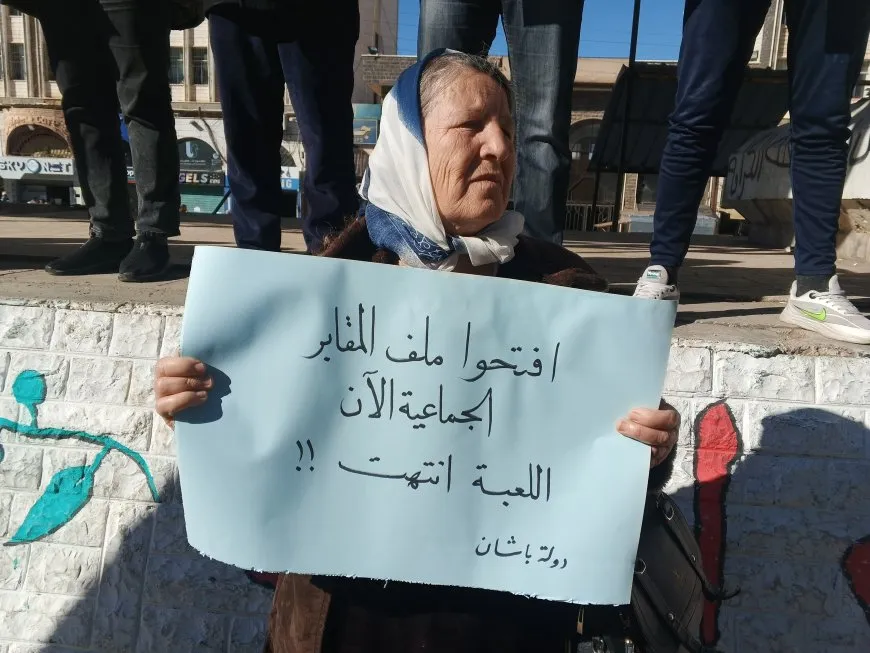 SKYONET
GELS
افتحوا ملف المقابر
الجماعية الآن
اللعبة انتهت !!
دولة باشان